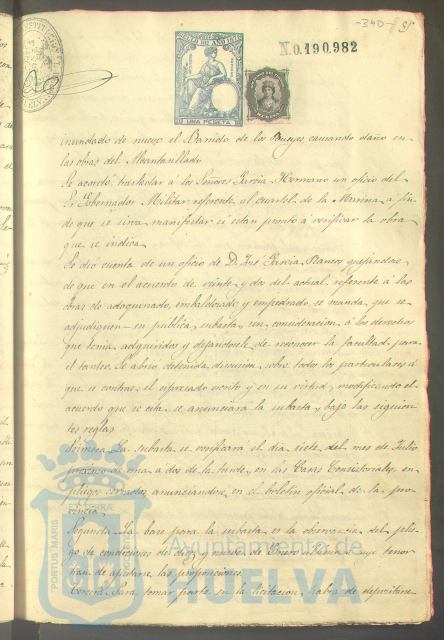 -340-
N.0.190,982
UNA PESETA
inundado de nuevo el Barrido de los Bueyes, causando daño en
las obras del Alcantarillado
Se acordó, trasladar á los Señores García Hermano un oficio del
Sr. Gobernador Militar referente al cuartel de la Marina, a fin
de que se sirva manifestar si están pronto á verificar la obra
que se indica
Se dió cuenta de un oficio de D. José García Ramos quejándose
de que en el acuerdo de veinte y dos del actual referente á las
obras de adoquinado, embaldosado y empedrado se manda, que se
adjudiquen en pública subasta, sin consideración á los derechos
que tenía adquiridos y dejándole de reconocer la facultad para
el tanteo. Se abrió detenida discusión sobre todos los particulares á
que se contrae el espresado escrito y en su virtud, modificando el
acuerdo que se cita, se anunciará la subasta, bajo las siguien
tes reglas
Primera La subasta se verificará el día siete del mes de Julio
próximo de una a dos de la tarde, en las Casas Consistoriales, en
pliegos cerrados anunciándose en el boletín oficial de la pro
vincia
Segunda La base para la subasta es la observancia del plie
go de condiciones de diez y nueve de Enero á cuyo tenor
han de ajustarse las proposiciones
Tercera Para tomar parte en la licitación habrá de depositarse
PORTUS MARIS
ET TERRAE
Ayuntamiento de
HUELVA